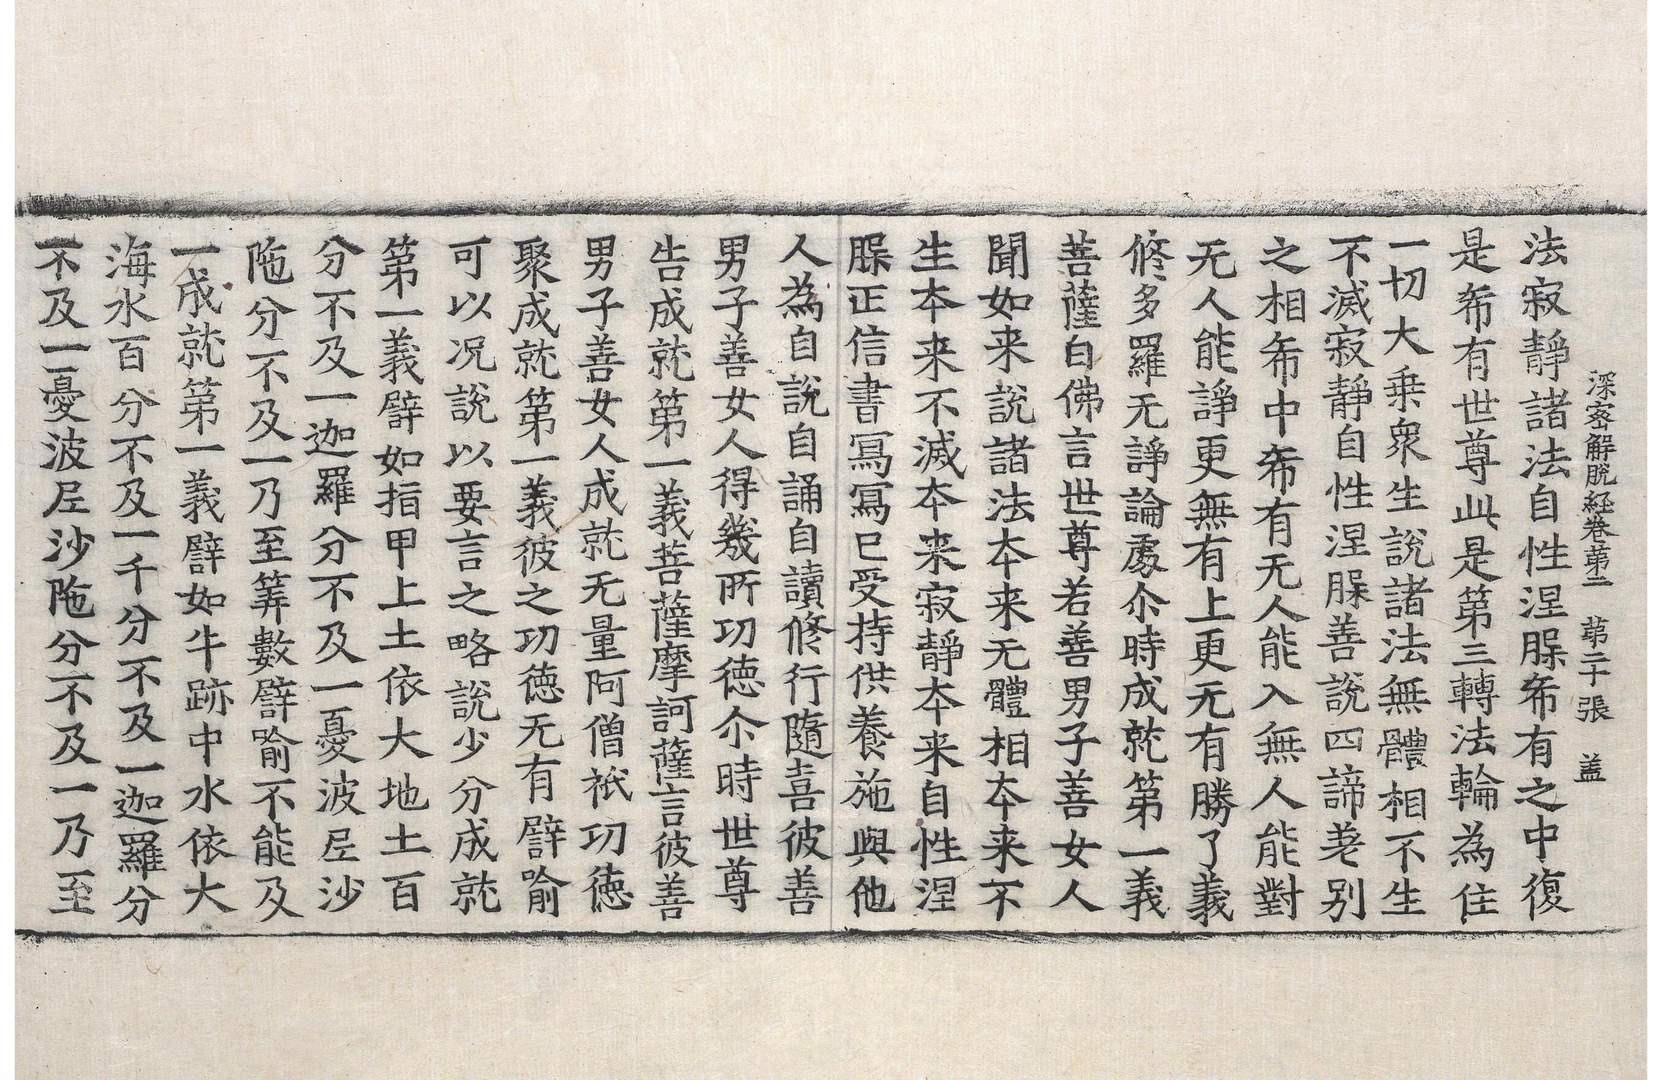 深密解脫經卷第二　第二十張　盖
法寂靜諸法自性涅槃希有之中復
是希有世尊此是第三轉法輪為住
一切大乗衆生說諸法無體相不生
不滅寂靜自性涅槃善說四諦差别
之相希中希有无人能入無人能對
无人能諍更無有上更无有勝了義
修多羅无諍論處尒時成就第一義
菩薩白佛言世尊若善男子善女人
聞如来說諸法本来无體相本来不
生本来不滅本来寂靜本来自性涅
槃正信書寫寫已受持供養施與他
人為自說自誦自讀修行隨喜彼善
男子善女人得幾所功德尒時世尊
告成就第一義菩薩摩訶薩言彼善
男子善女人成就无量阿僧祇功徳
聚成就第一義彼之功徳无有譬喻
可以况說以要言之略說少分成就
第一義譬如指甲上土依大地土百
分不及一迦羅分不及一憂波𡰱沙
陁分不及一乃至筭數譬喻不能及
一成就第一義譬如牛跡中水依大
海水百分不及一千分不及一迦羅分
不及一憂波𡰱沙陁分不及一乃至